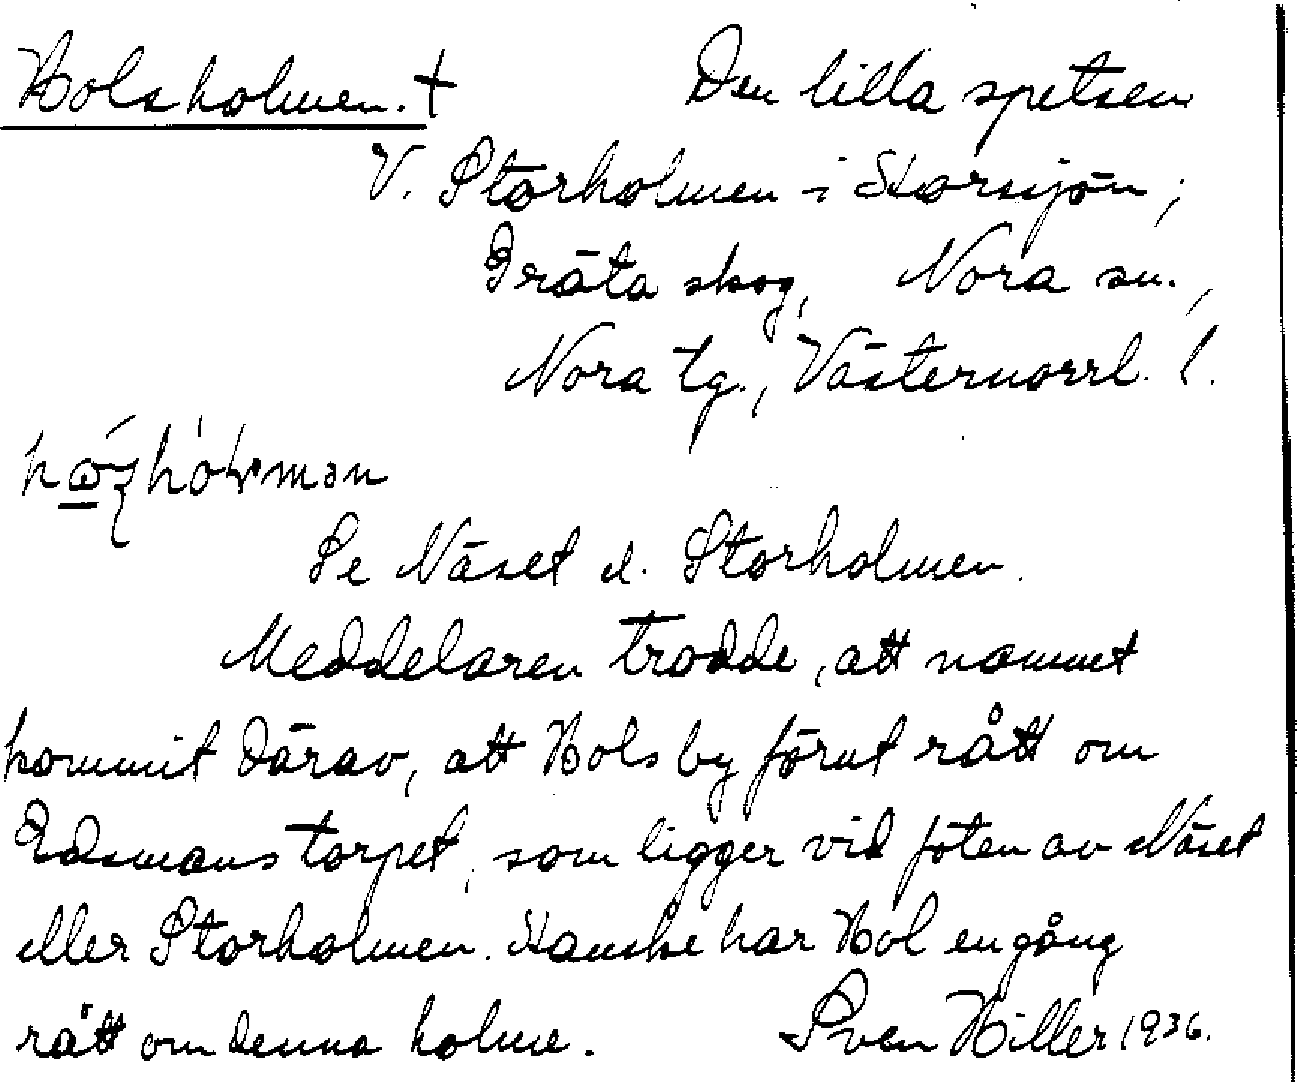 Holsholmen. †
Den lilla spetsen
V. Storholmen i Storsjön,
Gräta skog, Nora sn.,
Nora tg., Västernorrl. l.
Se Näset el. Storholmen.
Meddelaren trodde, att namnet
kommit därav, att Hols by förut rått om
Edsmanstorpet, som ligger vid foten av Näset
eller Storholmen. Kanske har Hol en gång
rått om denna holme.
Sven Hiller 1936.